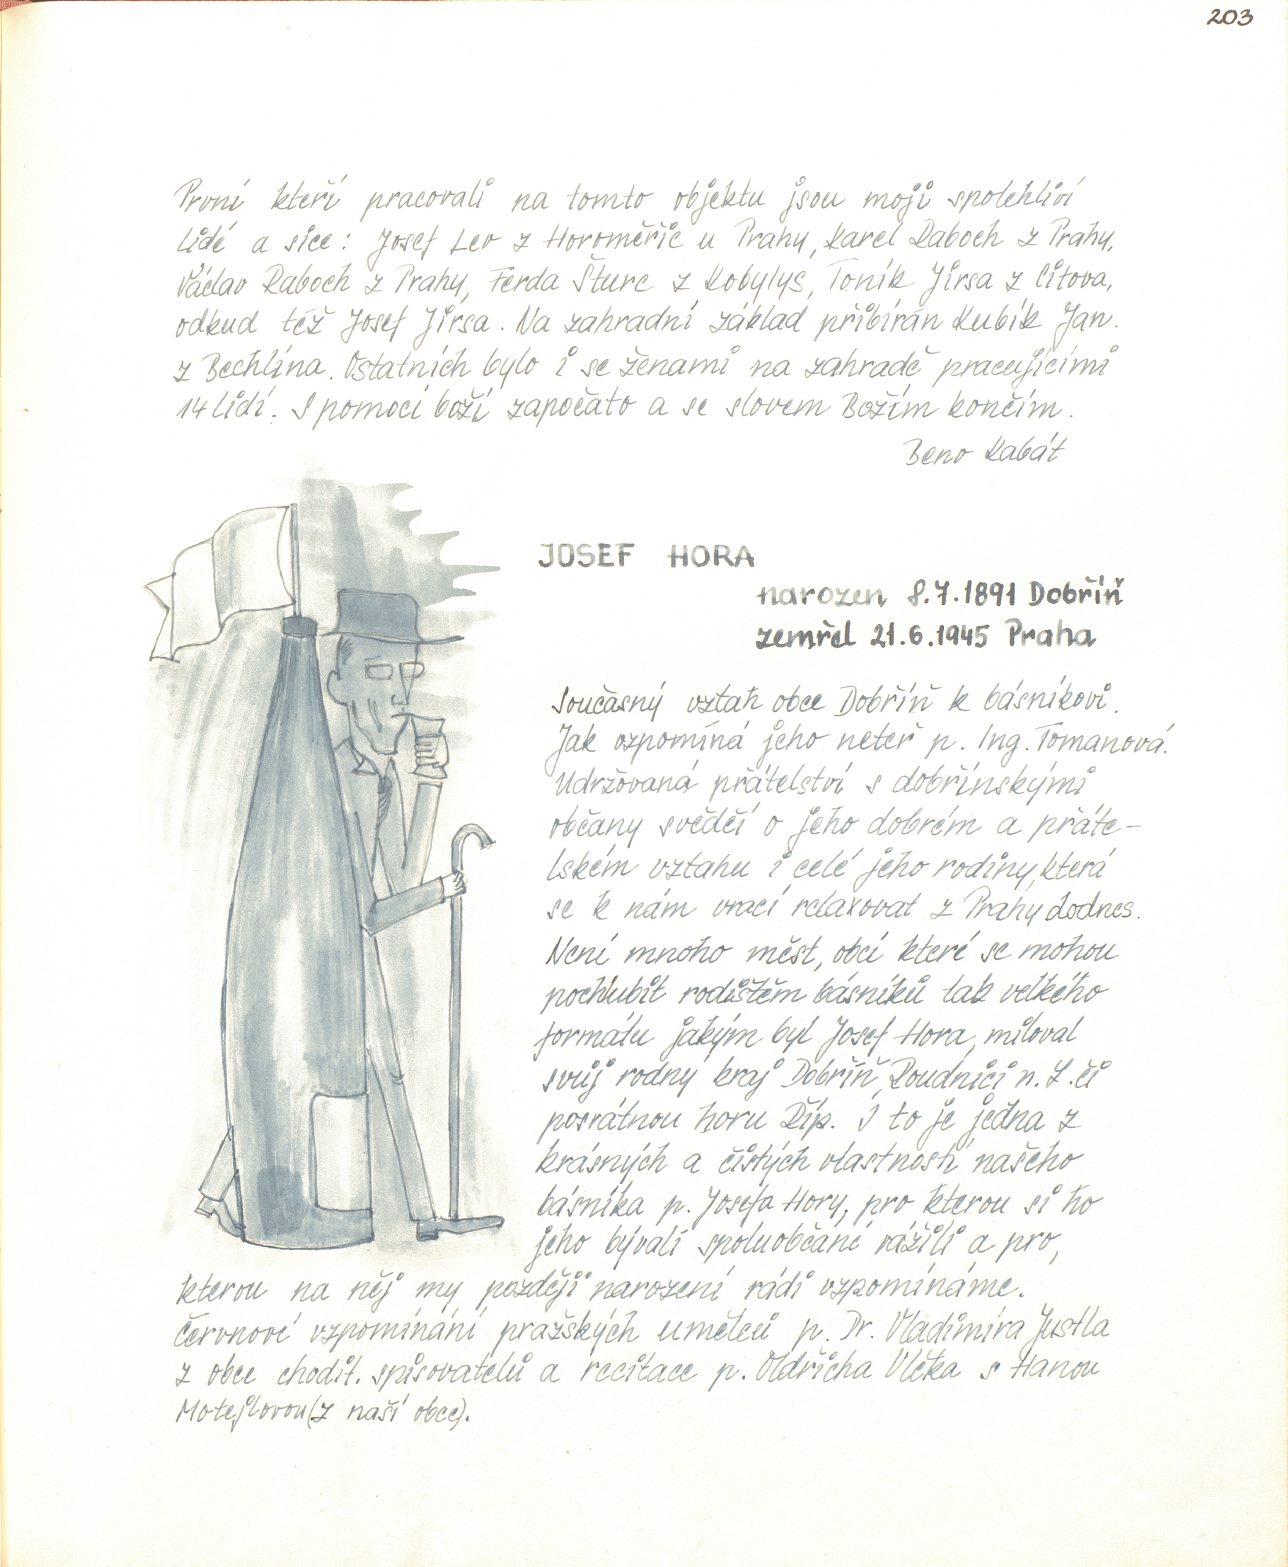 203
První kteří pracovali na tomto objektu jsou moji spolehliví
lidé a sice: Josef Lev z Horoměřic u Prahy, Karel Raboch z Prahy,
Václav Raboch z Prahy, Ferda Šturc z Kobylys, Toník Jirsa z Cítova,
odkud též Josef Jirsa. Na zahradní základ přibírán Kubík Jan.
z Bechlína. Ostatních bylo i se ženami na zahradě pracujícími
14 lidí. S pomocí boží započato a se slovem Božím končím.
Beno Kabát
JOSEF HORA
narozen 8.7.1891 Dobříň
zemřel 21.6.1945 Praha
Současný vztah obce Dobříň k básníkovi.
Jak vzpomíná jeho neteř p. Ing. Tomanová.
Udržovaná přátelství s dobřínskými
občany svědčí o jeho dobrém a přáte-
lském vztahu i celé jeho rodiny, která
se k nám vrací relaxovat z Prahy dodnes.
Není mnoho měst, obcí které se mohou
pochlubit rodištěm básníků tak velkého
formátu jakým byl Josef Hora, miloval
svůj rodný kraj Dobříň, Roudnici n. L. či
posvátnou horu Říp. I to je jedna z
krásných a čistých vlastností našeho
básníka p. Josefa Hory, pro kterou si ho
jeho bývalí spoluobčané vážili a pro,
kterou na něj my později narození rádi vzpomínáme.
Červnové vzpomínání pražských umělců p. Dr. Vladimíra Justla
z obce chodit. spisovatelů a recitace p. Oldřicha Vlčka s Hanou
Motejlovou (z naší obce).